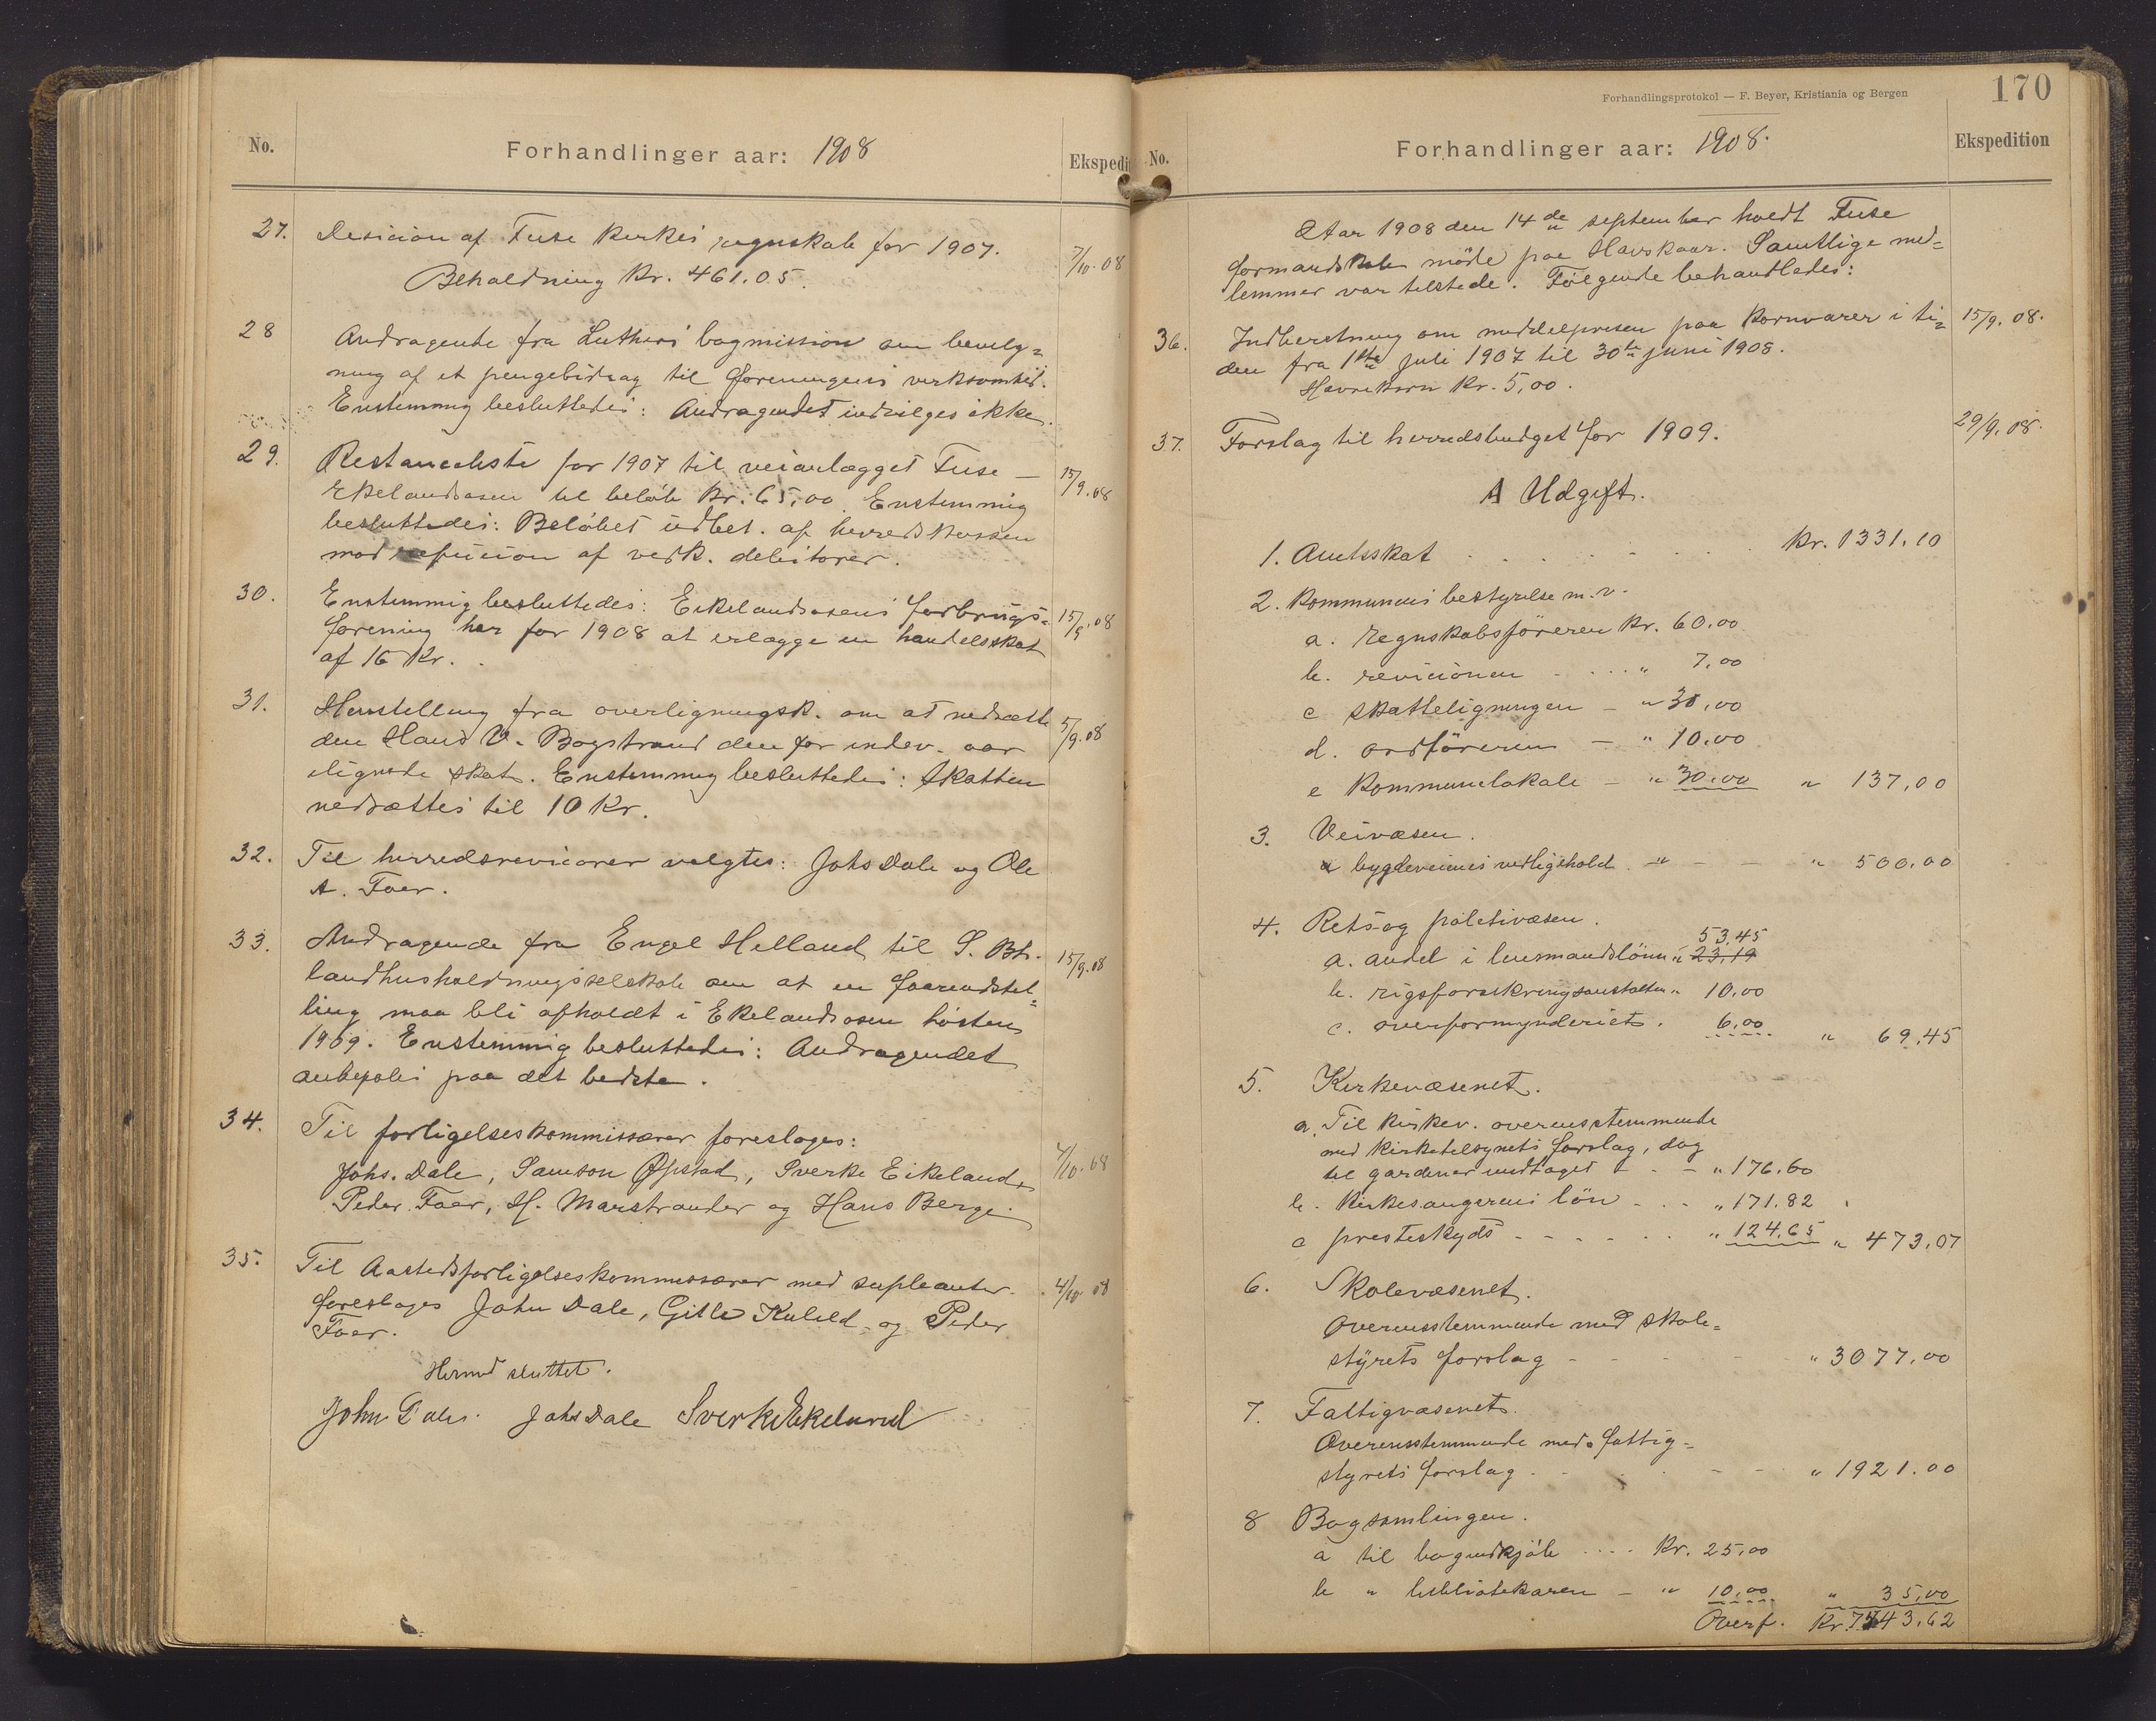 No.
Forhandlinger aar: 1908
Ekspedi
27. Desision af Fuse kirkes regnskab for 1907. 7/10. 08
Beholdning Kr. 461.05.
28 Andragende fra Luthers bogmission om bevilg=
ning af et pengebidrag til foreningens virksomhed.
Enstemmig besluttedes: Andragendet indvilges ikke.
29. Restanceliste for 1907 til veianlægget Fuse — 15/9.08
Ekelandsosen til beløb kr. 65,00. Enstemmig
besluttedes: Beløbet udbet. af herredskassen
mod refusion af vedk. debitorer.
30. Enstemmig besluttedes: Eikelandsosens forbrugs= 15/9.08
forening har for 1908 at erlægge en handelsskat
af 16 Kr.
31. Henstilling fra overligningsk. om at nedsætte 5/9.08
den Hans V. Bogstrand den for indev. aar
ilignede skat. Enstemmig besluttedes: Skatten
nedsættes til 10 Kr.
32. Til herredsrevisorer valgtes: Johs Dale og Ole
A. Foer.
33. Andragende fra Engel Helland til S. Bh. 15/9.08
landhusholdningsselskab om at en faareudstil=
ling maa bli afholdt i Ekelandsosen høsten
1909. Enstemmig besluttedes: Andragendet
anbefales paa det bedste.
34. Til forligelseskommissærer foreslages: 7/10.08
Johs. Dale, Samson Øpstad, Sverke Eikeland,
Peder Foer, H. Marstrander og Hans Berge.
35. Til Aastedsforligelseskommissærer med supleanter 4/10 08
foreslages John Dale, Gitle Kuleld og Peder
Foer.
Hermed sluttet.
John Dale. Johs Dale Sverke Ekeland
170
Forhandlingsprotokol — F. Beyer, Kristiania og Bergen
No.
Forhandlinger aar: 1908.
Ekspedition
Aar 1908 den 14de september holdt Fuse
formandskab møde paa Havskaar. Samtlige med=
lemmer var tilstede. Følgende behandledes:
36. Indberetning om middelprisen paa kornvarer i ti= 15/9. 08.
den fra 1ste juli 1907 til 30te juni 1908.
Havrekorn kr. 5,00.
37. Forslag til herredsbudget for 1909. 29/9. 08.
A Udgift.
1. Amtsskat . . . . . . kr. 1331.10
2. Kommunens bestyrelse m.v.
a. regnskabsføreren kr. 60.00
b. revisionen . . . . " 7,00
c skatteligningen — " 30,00
d. ordføreren — " 10.00
e kommunelokale — " 30.00 " 137,00
3. Veivæsen.
a bygdeveienes vedligehold. — " — — " 500.00
4. Rets og politivæsen.
53.45
a. andel i lensmandslønn " 23,19
b. rigsforsikringsanstalten " 10.00
c. overformynderiet. 6,00 " 69.45
5. Kirkevæsenet.
a. Til kirkev. overensstemmende
med kirketilsynets forslag, dog
til gardener undtaget — . — " 176.60
b. kirkesangerens løn — . . — " 171.82
c presteskyds — — — . . " 124.65 " 473,07
6. Skolevæsenet.
Overensstemmende med skole=
styrets forslag — — — — " 3077,00
7. Fattigvæsenet.
Overensstemmende med fattig=
styrets forslag . — . . — — " 1921.00
8 Bogsamlingen.
a til bogindkjøb .... Kr. 25,00
b " bibliotekaren — " 10,00 " 35,00
Overf. Kr. 7543,62